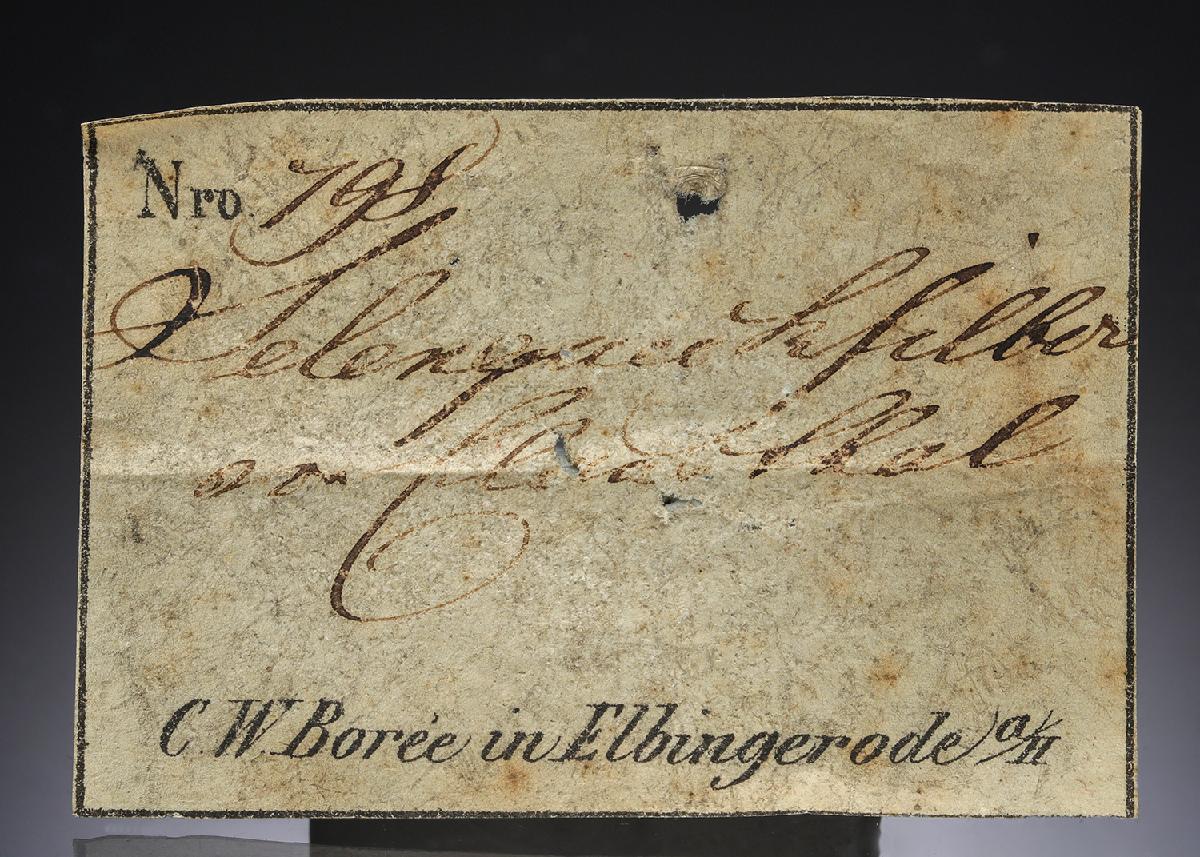 Nro 798
Selenquecksilber
von
C W Borée in Elbingerode a/H